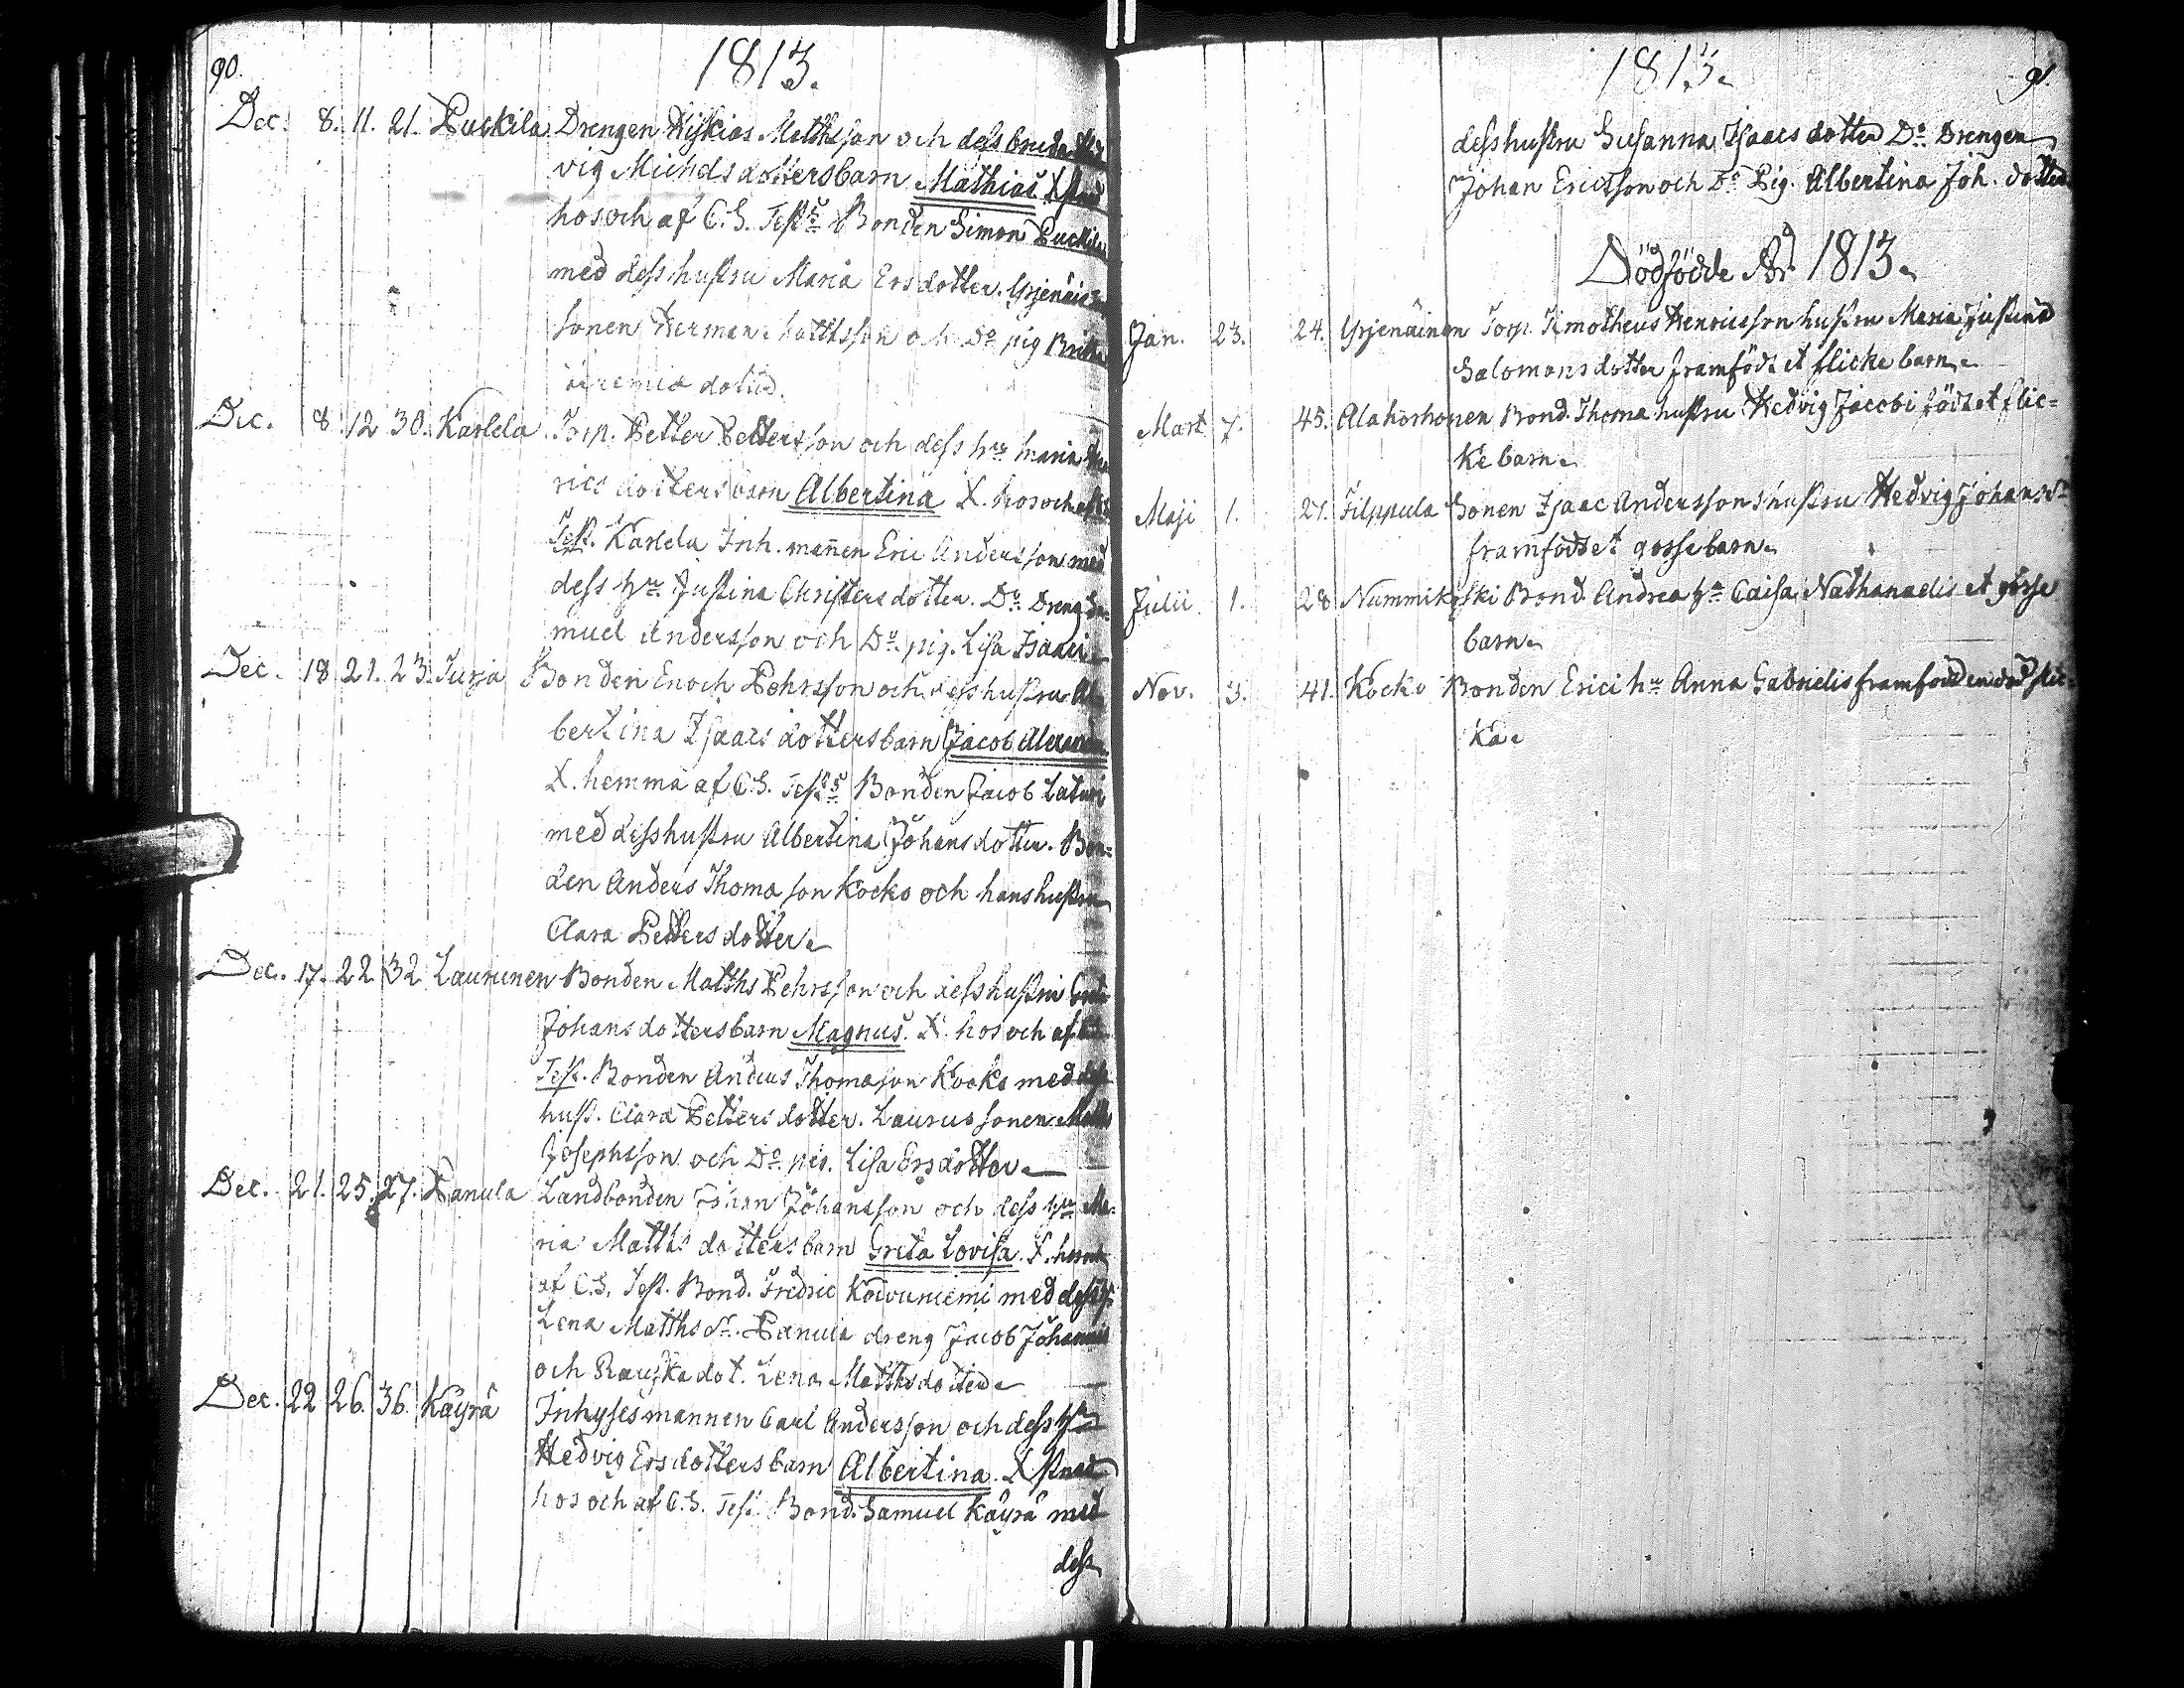 90.
1813.
Dec. 8. 11. 21. Puckila Drengen Hiskias Mathsson och dess brud Hed
vig Michelsdotters barn Mathias X
hos och af C.S. Test:s Bonden Simon Puckila
med dess hustru Maria Ersdotter. Yrjenäis
sonen Herman Matthsson och Do pig Brita
Jeremiæ dotter.
Dec. 8. 12 30. Karlela Torp. Petter Pettersson och dess hru Maria Hen
rics dotters barn Albertina X. hos och af C.S.
Test. Karlela Inh. mannen Eric Andersson med
dess hru Justina Christersdotter. Do Dreng Sa-
muel Andersson och Do pig. Lisa Isaaci
Dec. 18 21. 23. Turja Bonden Enoch Pehrsson och dess hustru Al
bertina Isaacs dotters barn Jacob Alexander
X. hemma af C.S. Test:s Bonden Jacob
med dess hustru Albertina Johansdotter. Bon-
den Anders Thomason Kocko och hans hustru
Clara Pettersdotter.
Dec. 17. 22 32 Laurunen Bonden Matths Pehrsson och dess hustru
Johansdotters barn Magnus. X. hos och af
Test. Bonden Anders Thomason Kocko med dess
hust. Clara Pettersdotter. Laurus sonen Matts
Josephsson och Do pig. Lisa Ersdotter.
Dec. 21. 25. 27. Panula Landbonden Johan Johansson och dess hru Ma-
ria Matths dotters barn Greta Lovisa. X. hemma
af C.S. Test. Bond. Fredric Koivuniemi med dess h.
Lena Matths dr. Panula dreng Jacob Johannis
och Rauska dot. Lena Matthsdotter
Dec. 22 26. 36. Käyrä Inhysesmannen Carl Andersson och dess hru
Hedvig Ersdotters barn Albertina. X
hos och af C.S. Test. Bond. Samuel Käyrä med
dess
1813.
91.
dess hustru Susanna Isaacs dotter Do Drengen
Johan Ericsson och Do Pig. Albertina Joh. dotter
Dödfödde År 1813.
Jan. 23. 24. Yrjenäinen Torp. Timotheus Henricsson hustru Maria Justina
Salomons dotter framfödt et flicke barn.
Mart. 7. 45. Alahorhonen Bond. Thomæ hustru Hedvig Jacobi födt et flic-
ke barn.
Maji 1. 21. Filppula Sonen Isaac Anderssons hustru Hedvig Johans dr
framfödt et gosse barn.
Julii 1. 28 Nummikoski Bond. Andreæ hru Caisa Nathanaelis et gosse
barn.
Nov. 3. 41. Kocko Bonden Erici hru Anna Gabrielis framfödd en död flic-
ka.